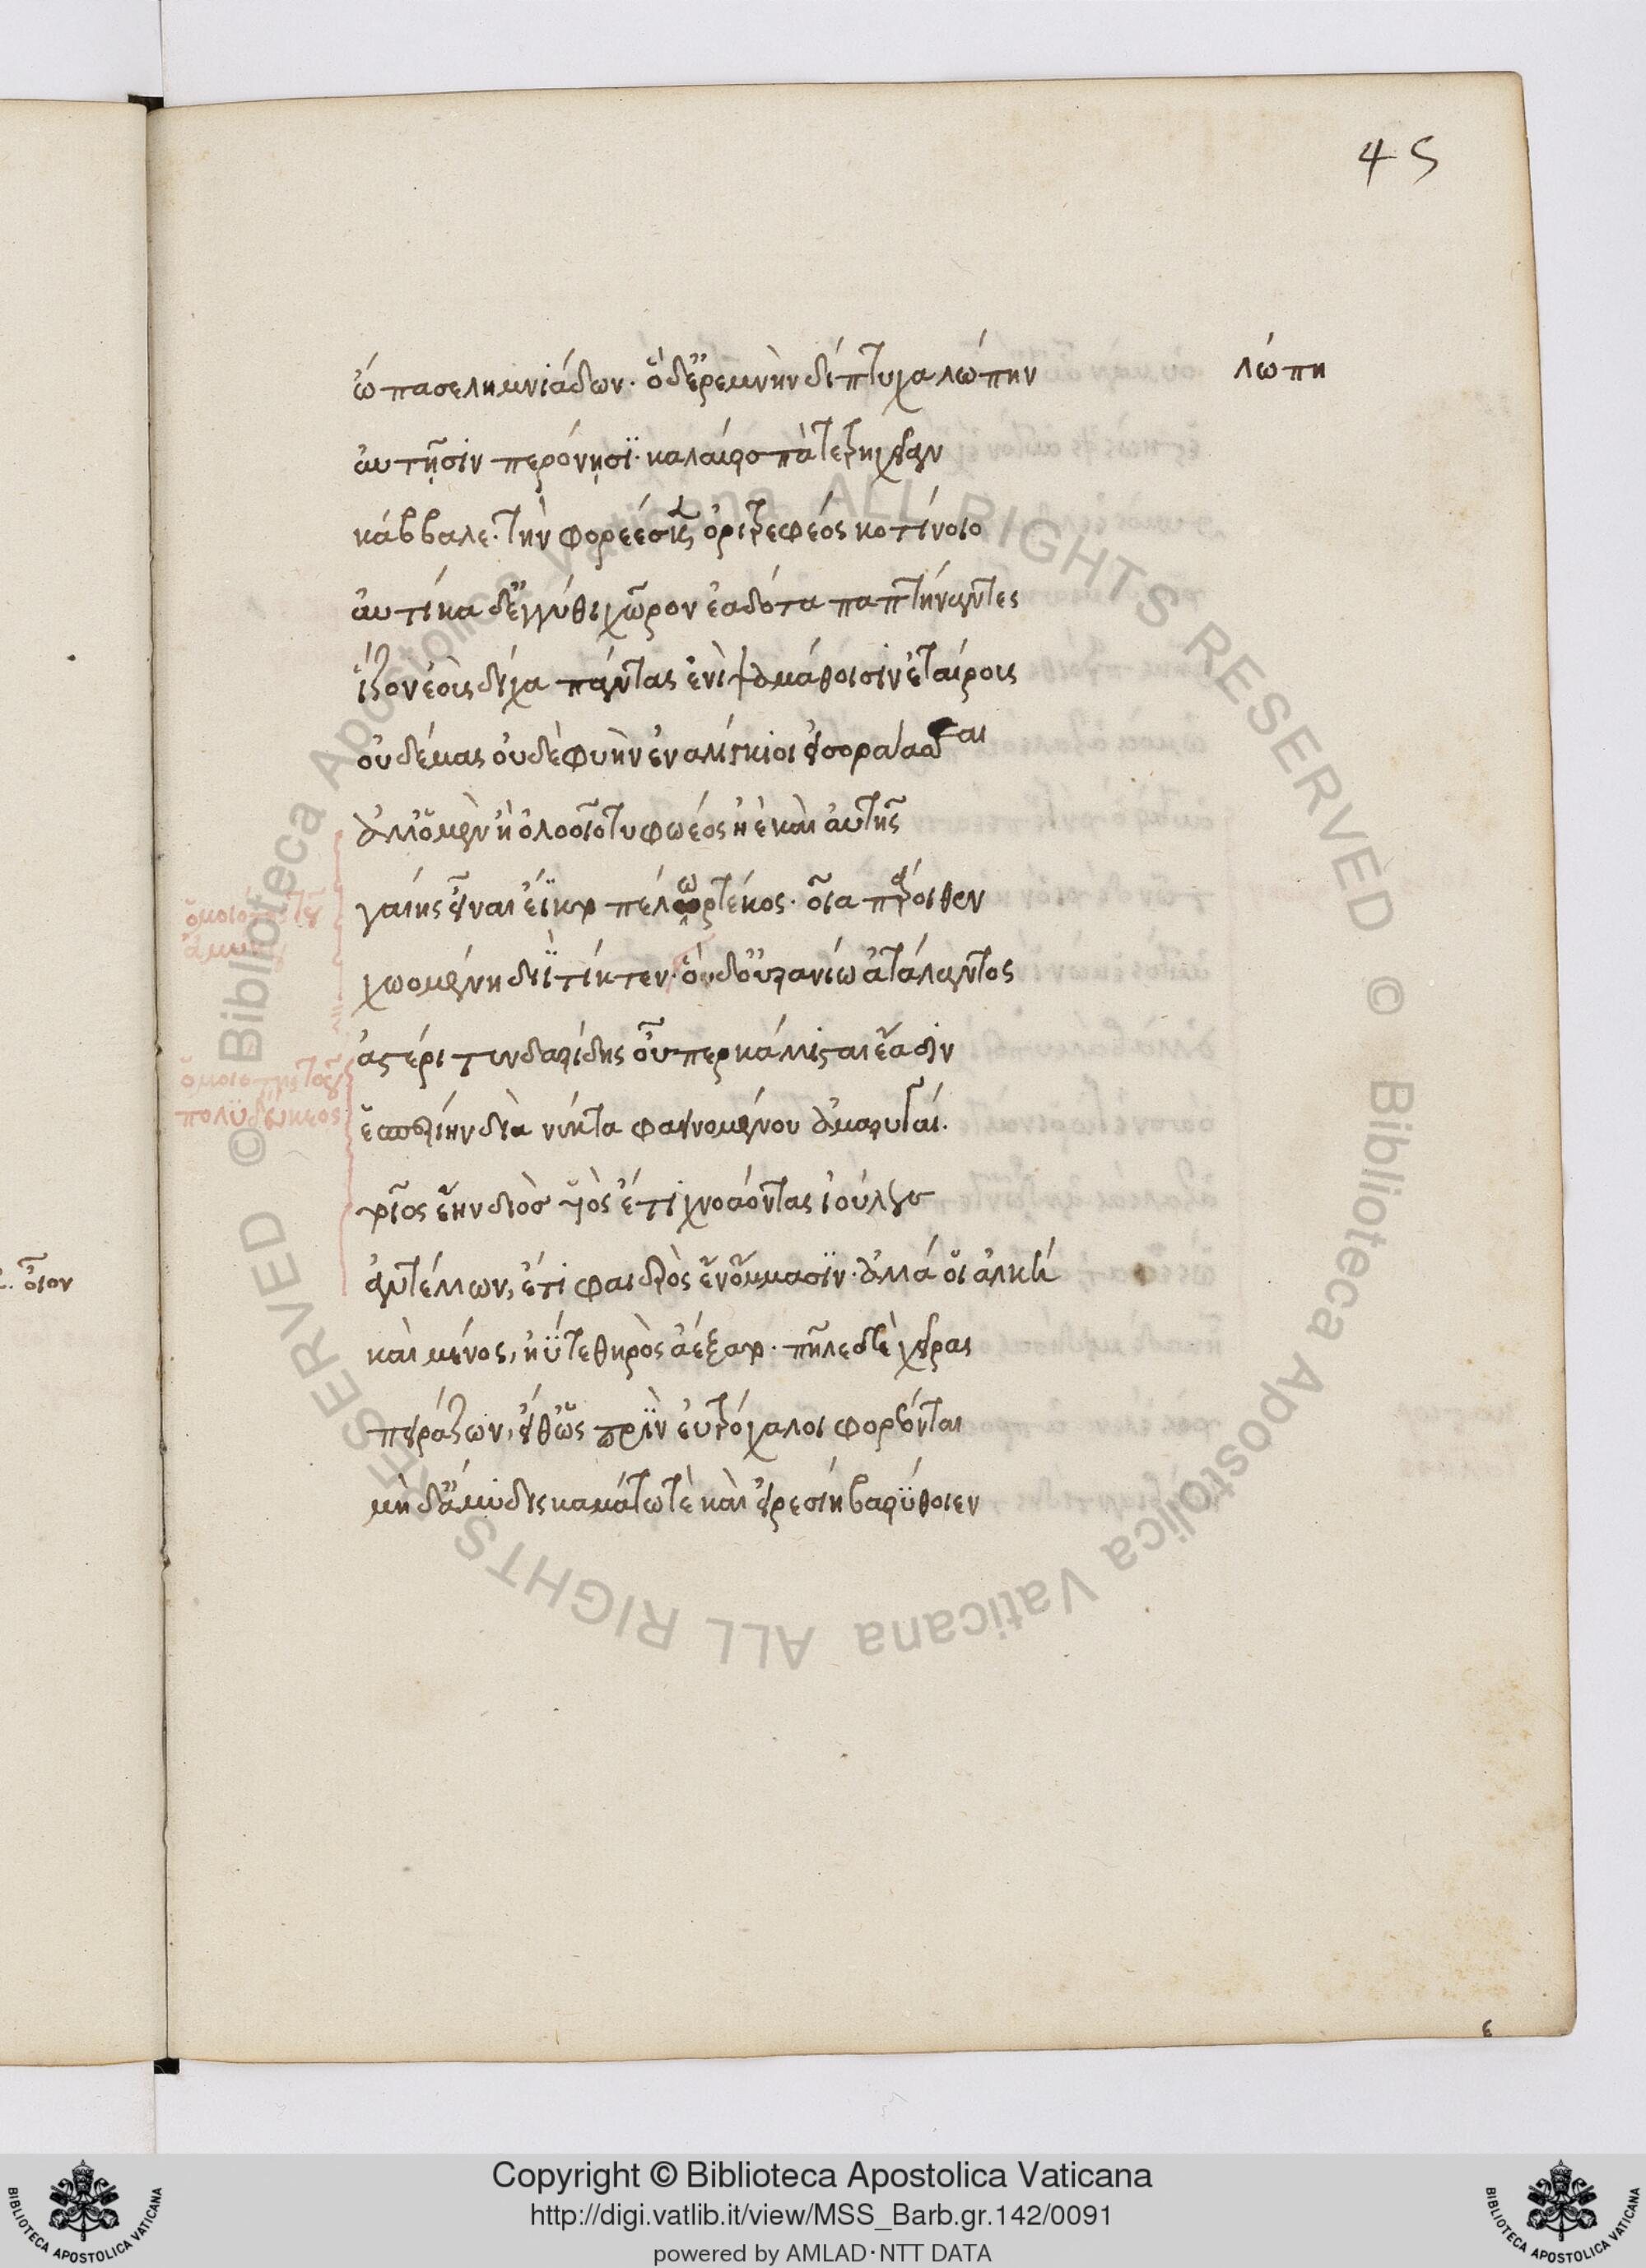 45
ὤπασε λημνιάδων· ὁ δ᾽ ἐρεμνὴν δίπτυχα λώπην
λώπη
αὐτῇσιν περόνῃσι· καλαύροπά τε τρηχεῖαν
κάββαλε· τὴν φορέεσκεν ὀριτρεφέος κοτίνοιο
αὐτίκα δ᾽ ἐγγύθι χῶρον ἑαδότα παπτήναντες
ἷζον ἑοὺς δίχα πάντας ἐνὶ ψαμάθοισιν ἑταίρους
οὐ δέμας οὐδὲ φυὴν ἐναλίγκιοι εἰσοράασθαι
ἀλλ᾽ ὁ μὲν ἢ ὀλοοῖο τυφωέος ἠὲ καὶ αὐτῆς
γαίης εἶναι ἔϊκτο πέλωρ τέκος· οἷα πάροιθεν
χωομένη διῒ τίκτεν· ὁ δ᾽ οὐρανίῳ ἀτάλαντος
ἀστέρι τυνδαρίδης οὗπερ κάλλισται ἔασιν
ἑσπερίην διὰ νύκτα φαεινομένου ἀμαρυγαί·
τοῖος ἔην διὸς υἱὸς ἔτι χνοάοντας ἰούλους
ἀντέλλων, ἔτι φαιδρὸς ἐν ὄμμασιν· ἀλλά οἱ ἀλκὴ
καὶ μένος, ἠΰτε θηρὸς ἀέξετο· πῆλε δὲ χεῖρας
πειράζων, εἴθ᾽ ὡς πρὶν εὐτρόχαλοι φορέονται
μὴ δ᾽ ἄμυδις καμάτῳ τε καὶ εἰρεσίῃ βαρύθοιεν
ὁμοιο
ἀμυκ
πολυδεύκεος
οἷον
Copyright © Biblioteca Apostolica Vaticana
http://digi.vatlib.it/view/MSS_Barb.gr.142/0091
powered by AMLAD·NTT DATA
BIBLIOTECA APOSTOLICA VATICANA
BIBLIOTECA APOSTOLICA VATICANA
© Biblioteca Apostolica Vaticana ALL RIGHTS RESERVED © Biblioteca Apostolica Vaticana ALL RIGHTS RESERVED